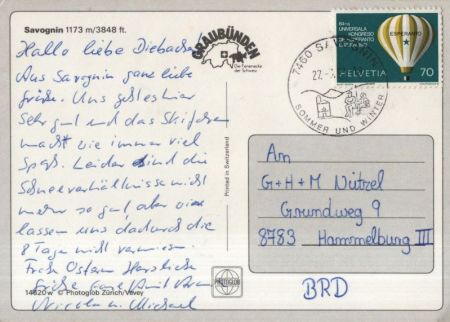 Savognin 1173 m/3848 ft.
Hallo liebe
Aus Savognin ganz liebe
Grüße. Uns geht es hier
sehr gut und das Skifahren
macht wie immer viel
Spaß. Leider sind die
Schneeverhältnisse nicht
mehr so gut aber wir
lassen uns dadurch die
8 Tage nicht vermiesen.
Frohe Ostern Herzliche
Grüße
Nicola u. Michael
14820w © Photoglob Zürich/Vevey
GRAUBÜNDEN
Die Ferienecke
der Schweiz
Printed in Switzerland
PHOTOGLOB
7460 SAVOGNIN
SOMMER UND WINTER
64ns
UNIVERSALA
KONGRESO
DE ESPERANTO
ESPERANTO
HELVETIA 70
An
G+H+M Nützel
Grundweg 9
8783 Hammelburg III
BRD